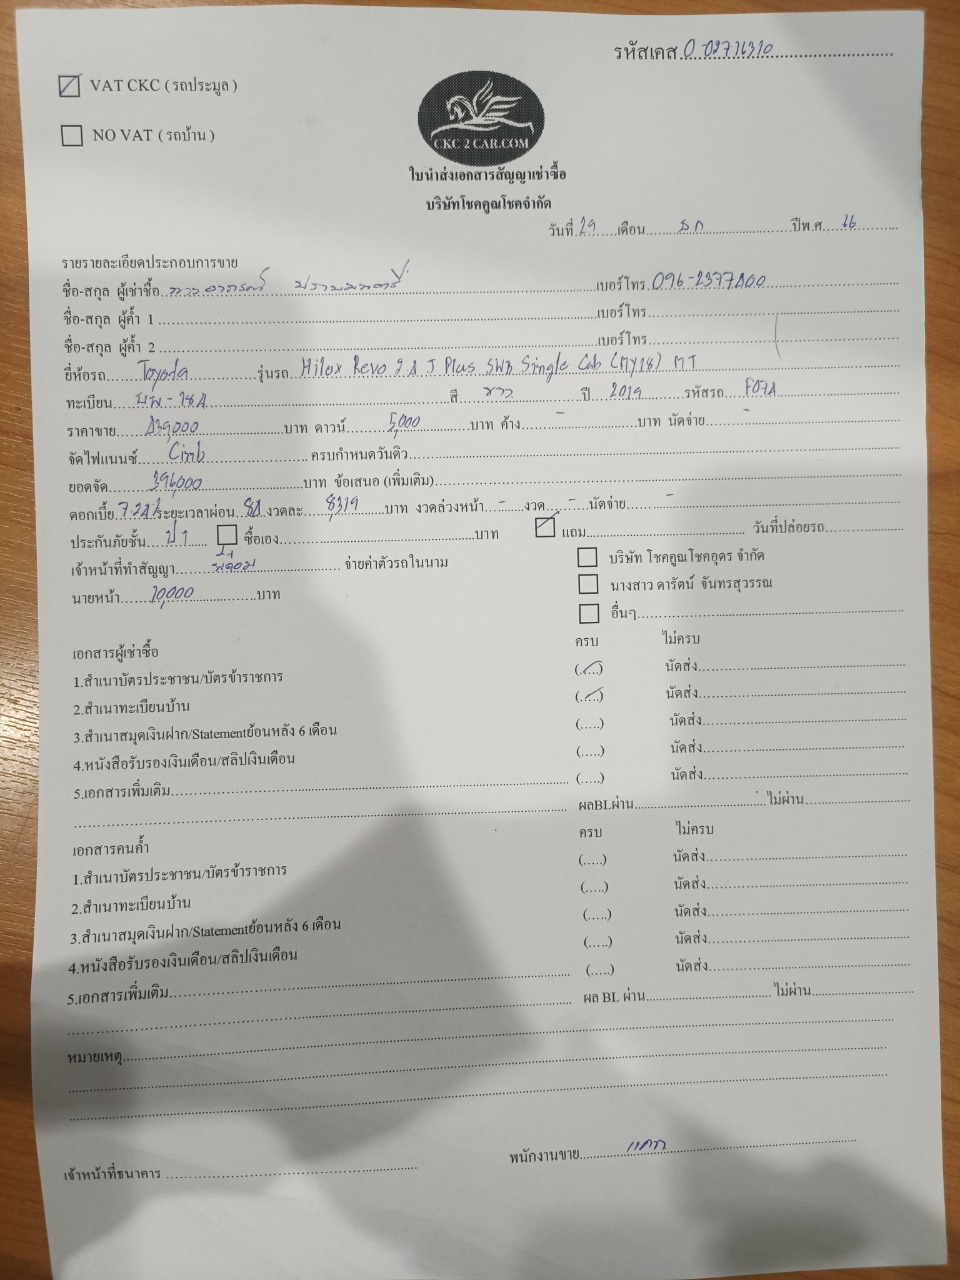 รหัสเคส 0-02716310
VAT CKC ( รถประมูล )
NO VAT ( รถบ้าน )
CKC 2 CAR.COM
ใบนำส่งเอกสารสัญญาเช่าซื้อ
บริษัทโชคคูณโชคจำกัด
วันที่ 29 เดือน ธค ปีพ.ศ. 66
รายรายละเอียดประกอบการขาย
ชื่อ-สกุล ผู้เช่าซื้อ เบอร์โทร. 096-2377800
ชื่อ-สกุล ผู้ค้ำ 1 เบอร์โทร
ชื่อ-สกุล ผู้ค้ำ 2 เบอร์โทร
ยี่ห้อรถ Toyota รุ่นรถ Hilux Revo 2.8 J Plus SWB Single Cab (MY18) MT
ทะเบียน สี ขาว ปี 2019 รหัสรถ
ราคาขาย 439,000 บาท ดาวน์ 5,000 บาท ค้าง - บาท นัดจ่าย -
จัดไฟแนนซ์ Cimb ครบกำหนดวันดิว
ยอดจัด 396,000 บาท ข้อเสนอ (เพิ่มเติม)
ดอกเบี้ย ระยะเวลาผ่อน 84 งวดละ 8319 บาท งวดล่วงหน้า - งวด - นัดจ่าย -
ประกันภัยชั้น ป1 ซื้อเอง บาท แถม วันที่ปล่อยรถ
เจ้าหน้าที่ทำสัญญา จ่ายค่าตัวรถในนาม บริษัท โชคคูณโชคอุดร จำกัด
นางสาว ดารัตน์ จันทรสุวรรณ
นายหน้า 10,000 บาท
อื่นๆ
เอกสารผู้เช่าซื้อ ครบ ไม่ครบ
1.สำเนาบัตรประชาชน/บัตรข้าราชการ (.....) นัดส่ง
2.สำเนาทะเบียนบ้าน (.....) นัดส่ง
3.สำเนาสมุดเงินฝาก/Statementย้อนหลัง 6 เดือน (.....) นัดส่ง
4.หนังสือรับรองเงินเดือน/สลิปเงินเดือน (.....) นัดส่ง
5.เอกสารเพิ่มเติม (.....) นัดส่ง
ผลBLผ่าน ไม่ผ่าน
เอกสารคนค้ำ ครบ ไม่ครบ
1.สำเนาบัตรประชาชน/บัตรข้าราชการ (.....) นัดส่ง
2.สำเนาทะเบียนบ้าน (.....) นัดส่ง
3.สำเนาสมุดเงินฝาก/Statementย้อนหลัง 6 เดือน (.....) นัดส่ง
4.หนังสือรับรองเงินเดือน/สลิปเงินเดือน (.....) นัดส่ง
5.เอกสารเพิ่มเติม (.....) นัดส่ง
ผล BL ผ่าน ไม่ผ่าน
หมายเหตุ
เจ้าหน้าที่ธนาคาร พนักงานขาย